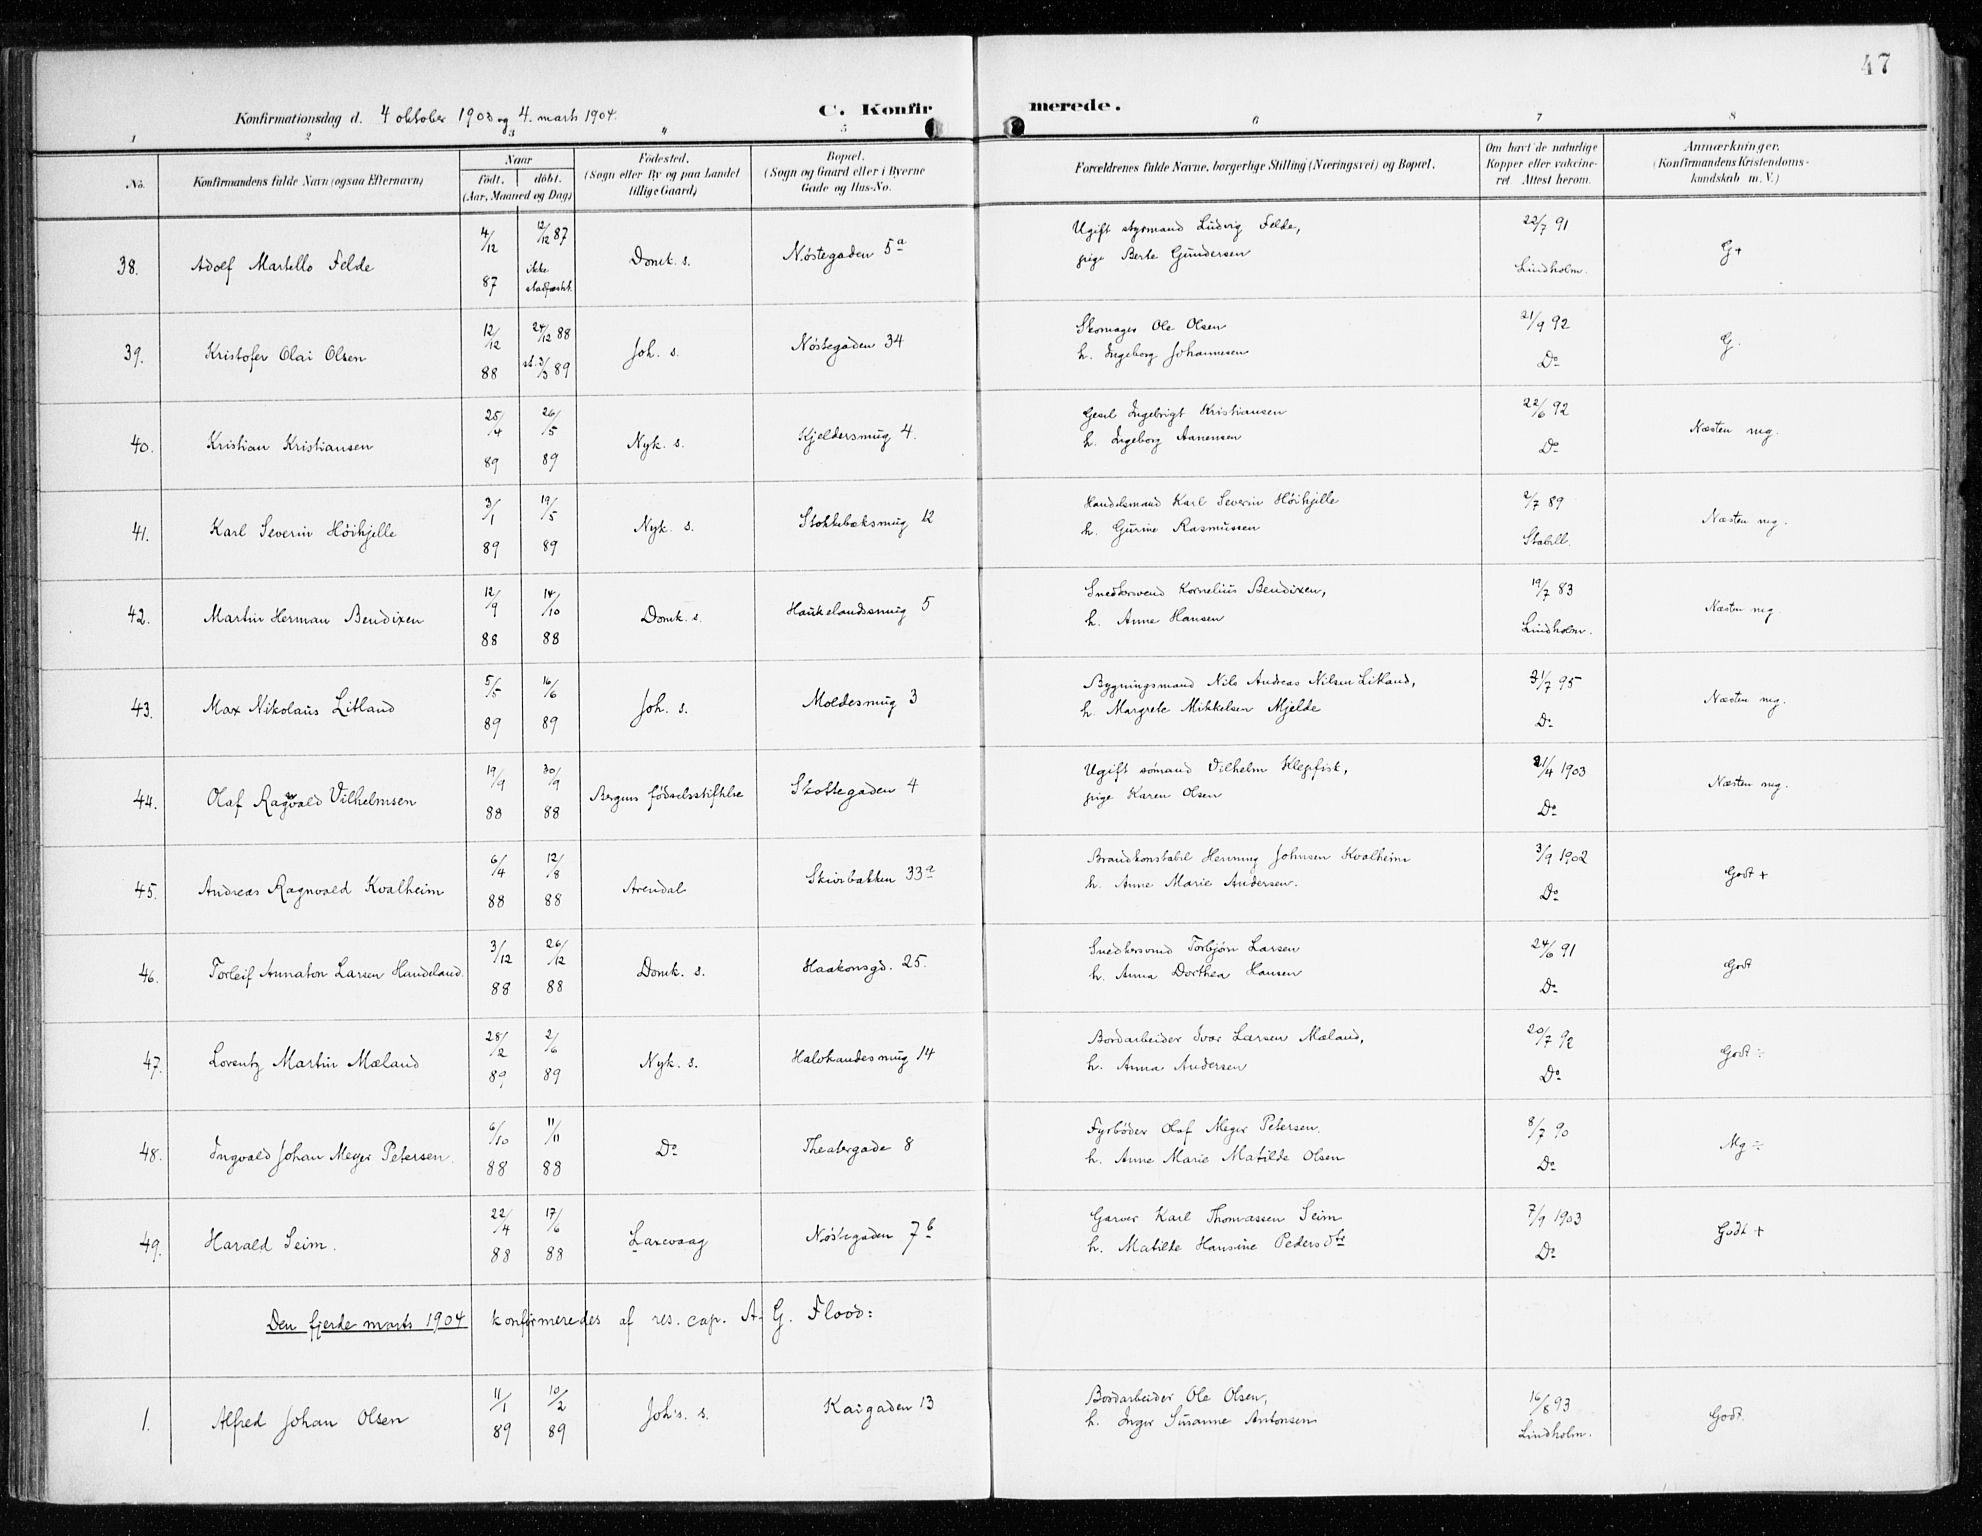 47
Konfirmationsdag d. 4 oktober 1903 og 4. marts 1904.
C. Konfirmerede.
1 2 3 4 5 6 7 8
No.
Konfirmandens fulde Navn (ogsaa Efternavn)
Naar
Født. døbt.
(Aar, Maaned og Dag)
Fødested.
(Sogn eller By og paa Landet
tillige Gaard)
Bopæl.
(Sogn og Gaard eller i Byerne
Gade og Hus-No.
Forældrenes fulde Navne, borgerlige Stilling (Næringsvei) og Bopæl.
Om havt de naturlige
Kopper eller vakcine-
ret. Attest herom.
Anmærkninger.
(Konfirmandens Kristendoms-
kundskab m. V.)
38. Adolf Martello Felde 4/12 87 12/12 87 ikke stadfæstet. Domk. s. Nøstegaden 5a
Ugift styrmand Ludvig Felde,
pige Berte Gundersen
22/7 91 Lindholm. G+
39. Kristofer Olai Olsen 12/12 88 24/12 88 st. 3/3 89 Joh. s. Nøstegaden 34
Skomager Ole Olsen
h. Ingeborg Johannesen
21/9 92 Do G.
40. Kristian Kristiansen 25/4 89 26/5 89 Nyk. s. Kjeldersmug 4.
Gesel Ingebrigt Kristiansen
h. Ingeborg Aanensen
22/6 92 Do Næsten meg.
41. Karl Severin Höihjelle 3/1 89 19/5 89 Nyk. s. Stokkebæksmug 12
Handelsmand Karl Severin Höihjelle
h. Gurine Rasmussen
2/7 89 Stabell. Næsten meg.
42. Martin Herman Bendixen 12/9 88 14/10 88 Domk. s. Haukelandssmug 5
Snedkersvend Kornelius Bendixen,
h. Anne Hansen
19/7 83 Lindholm. Næsten meg.
43. Max Nikolaus Litland 5/5 89 16/6 89 Joh. s. Moldesmug 3
Bygningsmand Nils Andreas Nilsen Litland,
h. Margrete Mikkelsen Mjelde
31/7 95 Do Næsten meg.
44. Olaf Ragvald Vilhelmsen 19/9 88 30/9 88 Bergens fødselsstiftelse Skottegaden 4
Ugift sømand Vilhelm Klepfisk,
pige Karen Olsen
21/4 1903 Do Næsten meg.
45. Andreas Ragnvald Kvalheim 6/4 88 12/8 88 Arendal Skivebakken 33a
Brandkonstabel Henning Johnsen Kvalheim
h. Anne Marie Andersen.
3/9 1902 Do Godt +
46. Torleif Annaton Larsen Handeland. 3/12 88 26/12 88 Domk. s. Haakonsgd. 25.
Snedkersvend Torbjørn Larsen
h. Anna Dorthea Hansen
24/6 91 Do Godt
47. Lorentz Martin Mæland 28/2 89 2/6 89 Nyk. s. Halvkandesmug 14
Bordarbeider Ivar Larsen Mæland,
h. Anna Andersen
20/7 92 Do Godt ÷
48. Ingvald Johan Meyer Petersen. 6/10 88 11/11 88 Do Theatergade 8
Fyrbøder Olaf Meyer Petersen.
h. Anne Marie Matilde Olsen
8/7 90 Do Mg ÷
49. Harald Seim. 22/4 88 17/6 88 Laxevaag Nøstegaden 7b
Garver Karl Thomassen Seim
h. Matilde Hansine Pedersdtr
7/9 1903 Do Godt +
Den fjerde marts 1904 konfirmeredes af res. cap. A. G. Flood:
1. Alfred Johan Olsen 11/1 89 10/2 89 Joh's. s. Kaigaden 13
Bordarbeider Ole Olsen,
h. Inger Susanne Antonsen
16/8 93 Lindholm. Godt.